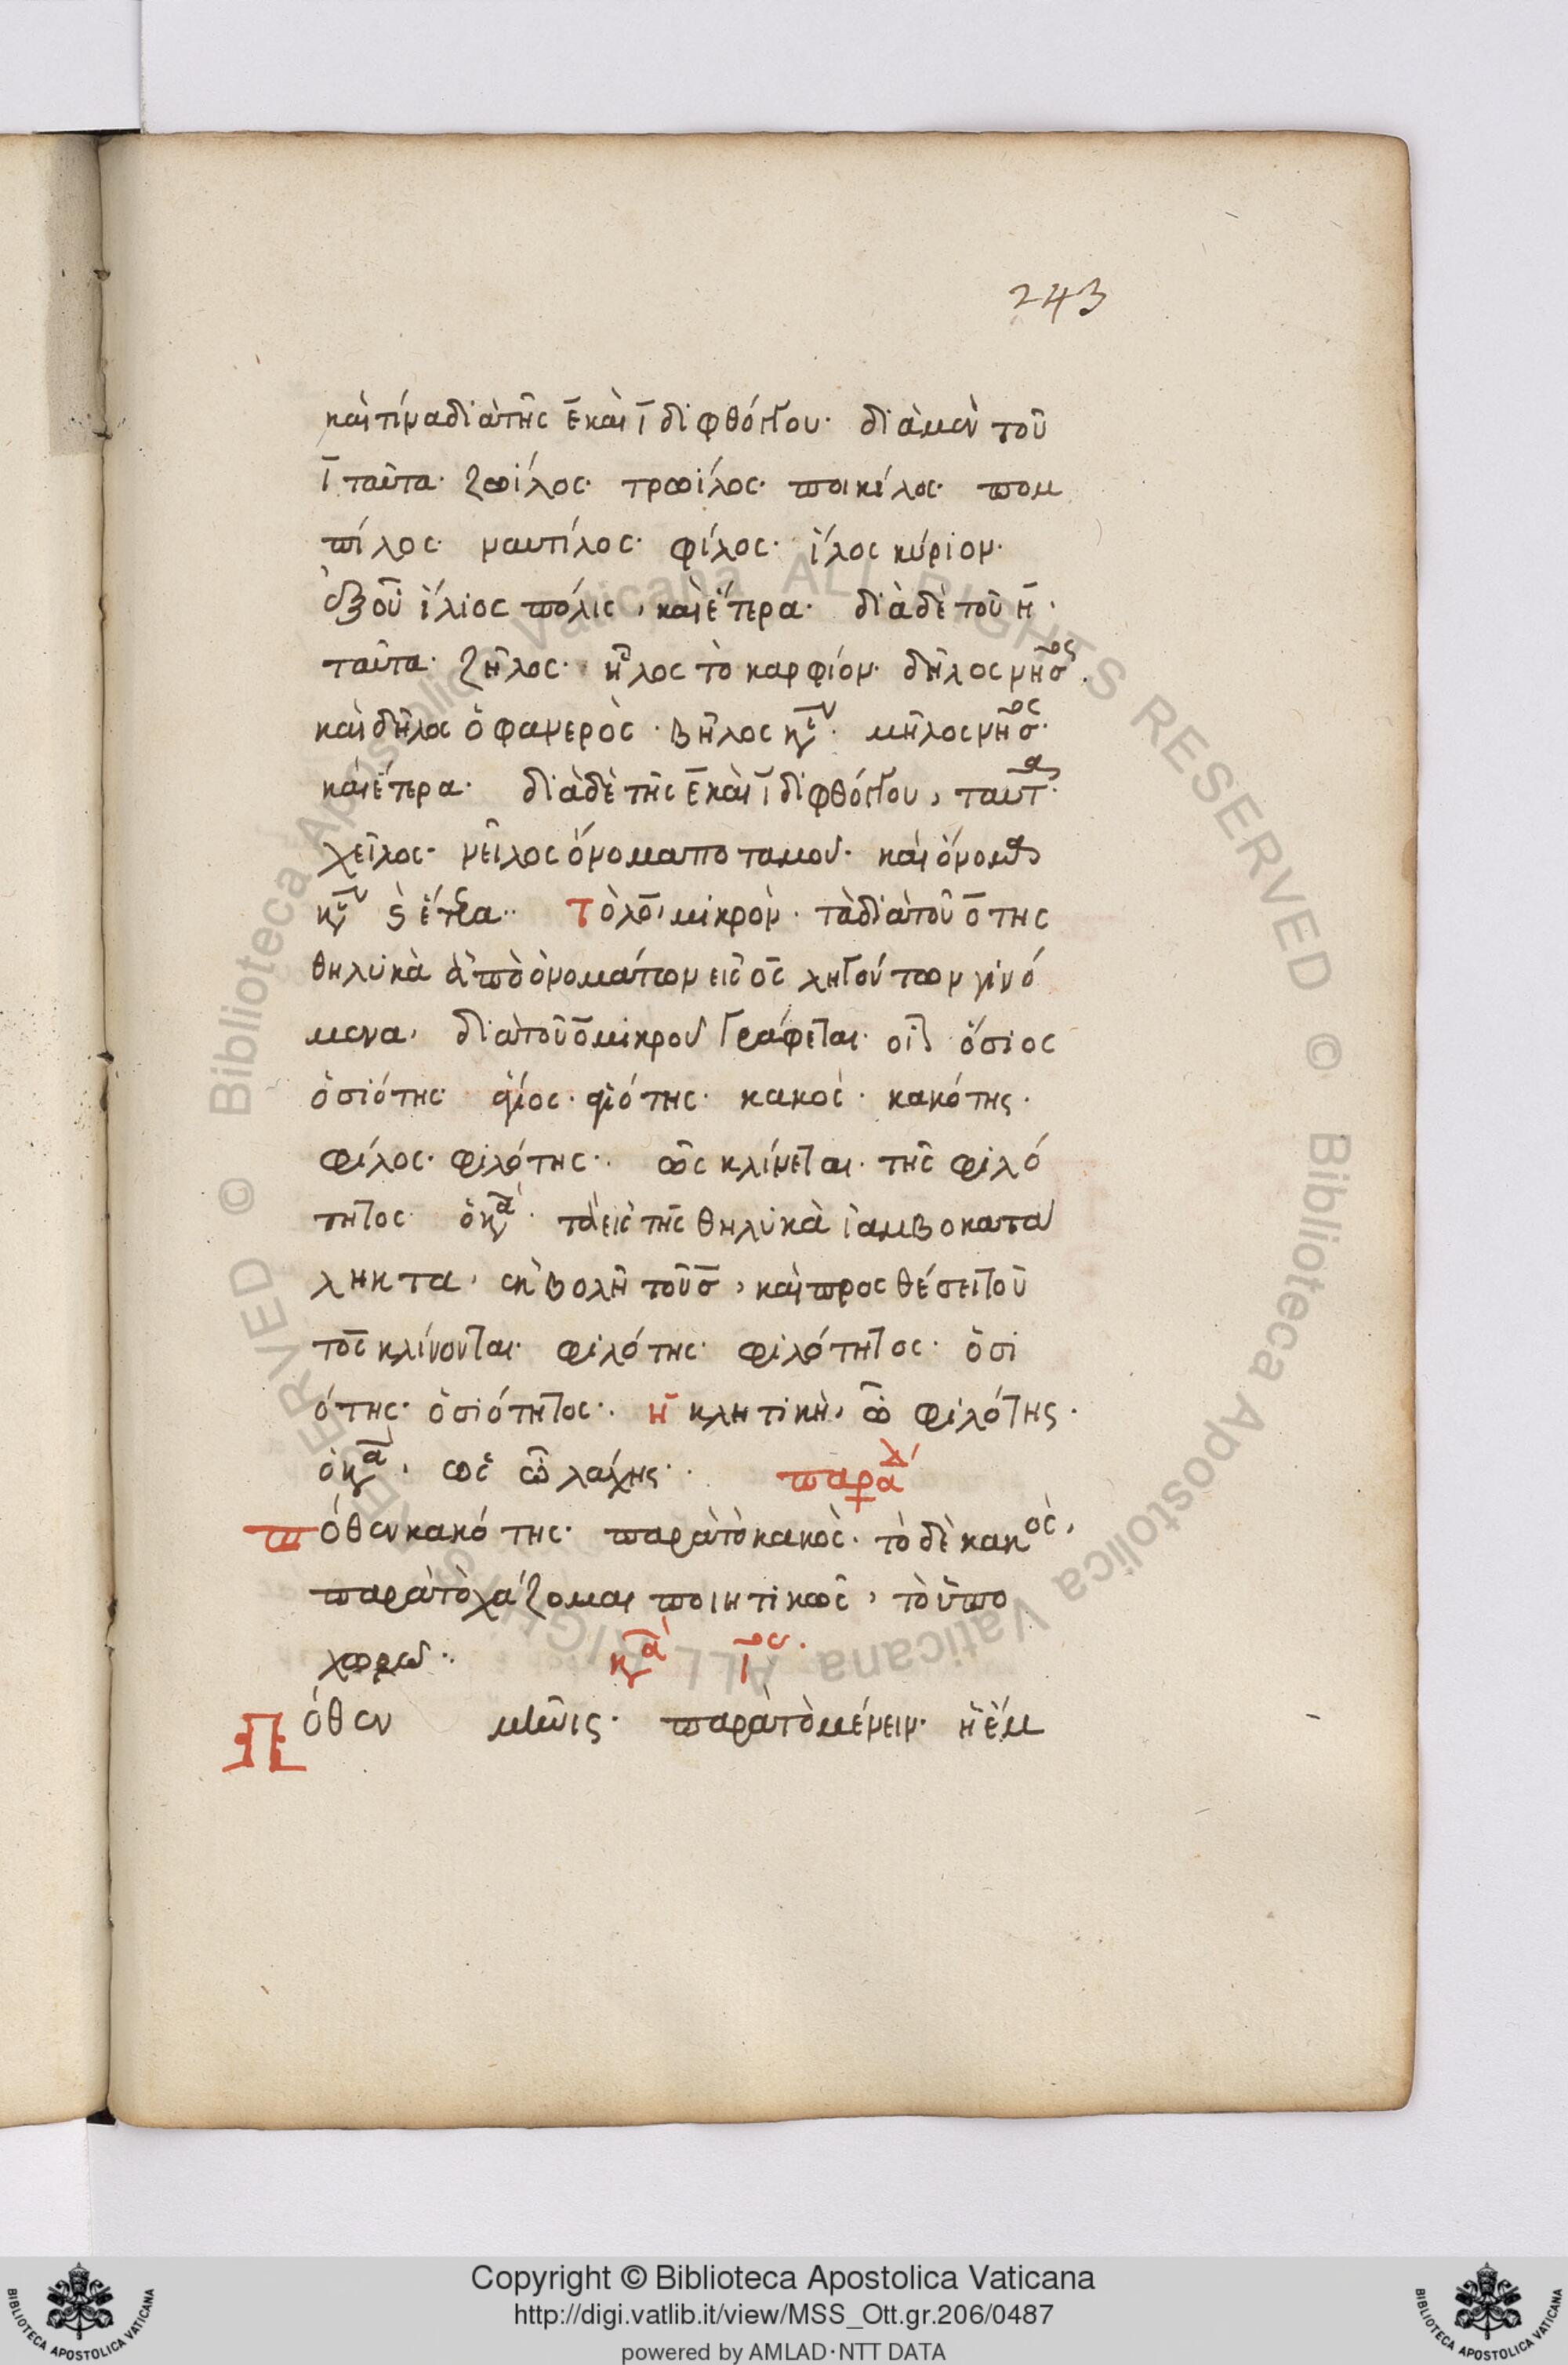 243
καὶ τίνα διὰ τῆς ε̄ καὶ ῑ διφθόγγου· διὰ μὲν τοῦ
ῑ ταῦτα· ζωίλος· τρωίλος· ποικίλος· πομ
πίλος· ναυτίλος· φίλος· ἴλος κύριον·
ἐξ οὗ ἴλιος πόλις, καὶ ἕτερα· διὰ δὲ τοῦ η̄·
ταῦτα· ζῆλος· ἧλος τὸ καρφίον· δῆλος νῆσος.
καὶ δῆλος ὁ φανερὸς· βῆλος κύ· μῆλος νῆσος·
καὶ ἕτερα· διὰ δὲ τῆς ε̄ καὶ ῑ διφθόγγου, ταῦτα·
χεῖλος· νεῖλος ὄνομα ποταμοῦ· καὶ ὄνομα
κύ καὶ ἕτερα·· Τὸ λο, μικρὸν· τὰ διὰ τοῦ ο̄της
θηλυκὰ ἀπὸ ὀνομάτων εἰς ο̄ς ληγόντων γινό
μενα, διὰ τοῦ ο̄ μικροῦ γράφεται· οἷον ὅσιος
ὁσιότης· ἅγιος· ἁγιότης· κακὸς· κακότης·
φίλος· φιλότης·· πῶς κλίνεται· τῆς φιλό
τητος· ὁ κα· τὰ εἰς της θηλυκὰ ἰαμβοκατα
ληκτα, ἐκβολῆ τοῦ σ̄, καὶ προσθέσει τοῦ
το̄ς κλίνονται· φιλότης· φιλότητος· ὁσι
ότης· ὁσιότητος·· ἡ κλητικὴ, ὦ φιλότης·
ὁ κα, ὡς ὦ λάχης·· παρα
Πόθεν κακότης· παρὰ τὸ κακὸς· τὸ δὲ κακὸς,
παρὰ τὸ χάζομαι ποιητικῶς, τὸ ὑπο
χωρῶ·· κα ῑ
Πόθεν μῆνις· παρὰ τὸ μένειν· ἡ ἔμ
Copyright © Biblioteca Apostolica Vaticana
http://digi.vatlib.it/view/MSS_Ott.gr.206/0487
powered by AMLAD·NTT DATA